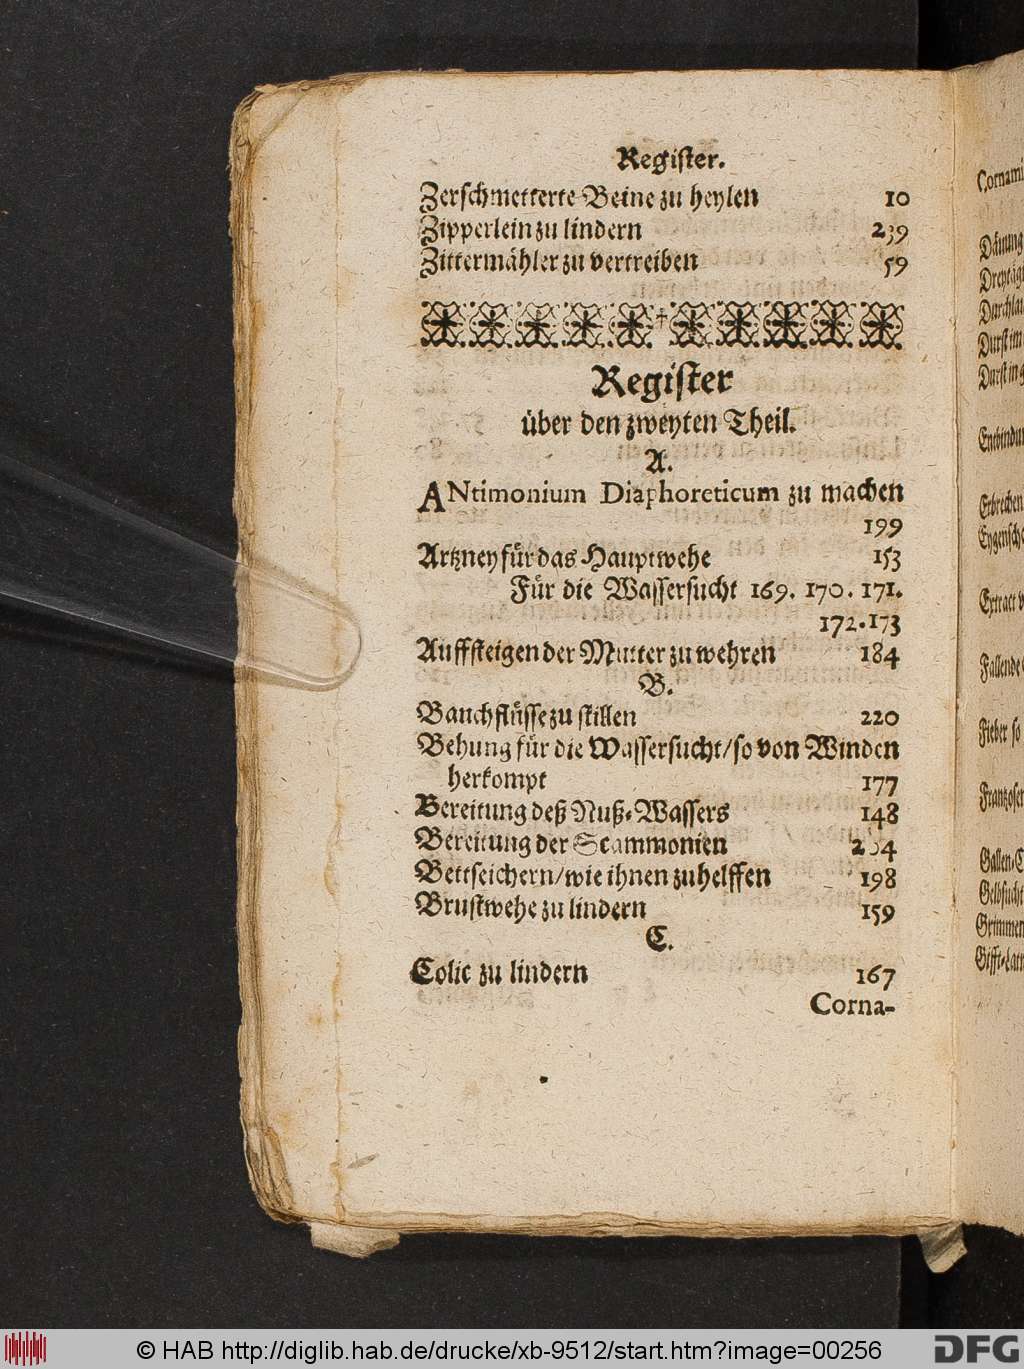 Register.
Zerschmetterte Beine zu heylen 10
Zipperlein zu lindern 239
Zittermähler zu vertreiben 59
Register
über den zweyten Theil.
A.
ANtimonium Diaphoreticum zu machen
199
Artzney für das Hauptwehe 153
Für die Wassersucht 169. 170. 171.
172. 173
Auffsteigen der Mutter zu wehren 184
B.
Bauchflüsse zu stillen 220
Behung für die Wassersucht/so von Winden
herkompt 177
Bereitung deß Nuß-Wassers 148
Bereitung der Scammonien 204
Bettseichern/wie ihnen zuhelffen 198
Brustwehe zu lindern 159
C.
Colic zu lindern 167
Corna-
Dreytäg
Durst im
Durst in g
Erbrechen
Extract v
Fallende
Fieber so
Frantzosen
Gallen-C
Gelbsucht
Grimmen
© HAB http://diglib.hab.de/drucke/xb-9512/start.htm?image=00256
DFG